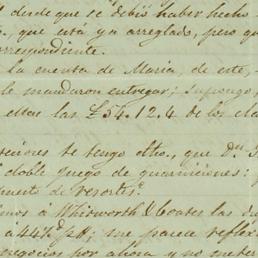 desde que se debió haber hecho
, que esta ya arreglado, pero qu
orrespondiente.
la cuenta de Maria, de este,
le mandaron entregar; supongo,
ellas las £54.12.4 de los ela
ciones te tengo dho, que Dn. J
doble juego de guarniciones:
mente de resortes.
mos á Whitworth & Coates las du
a 44½ p%; me parece reflex
negocios por ahora y no meter